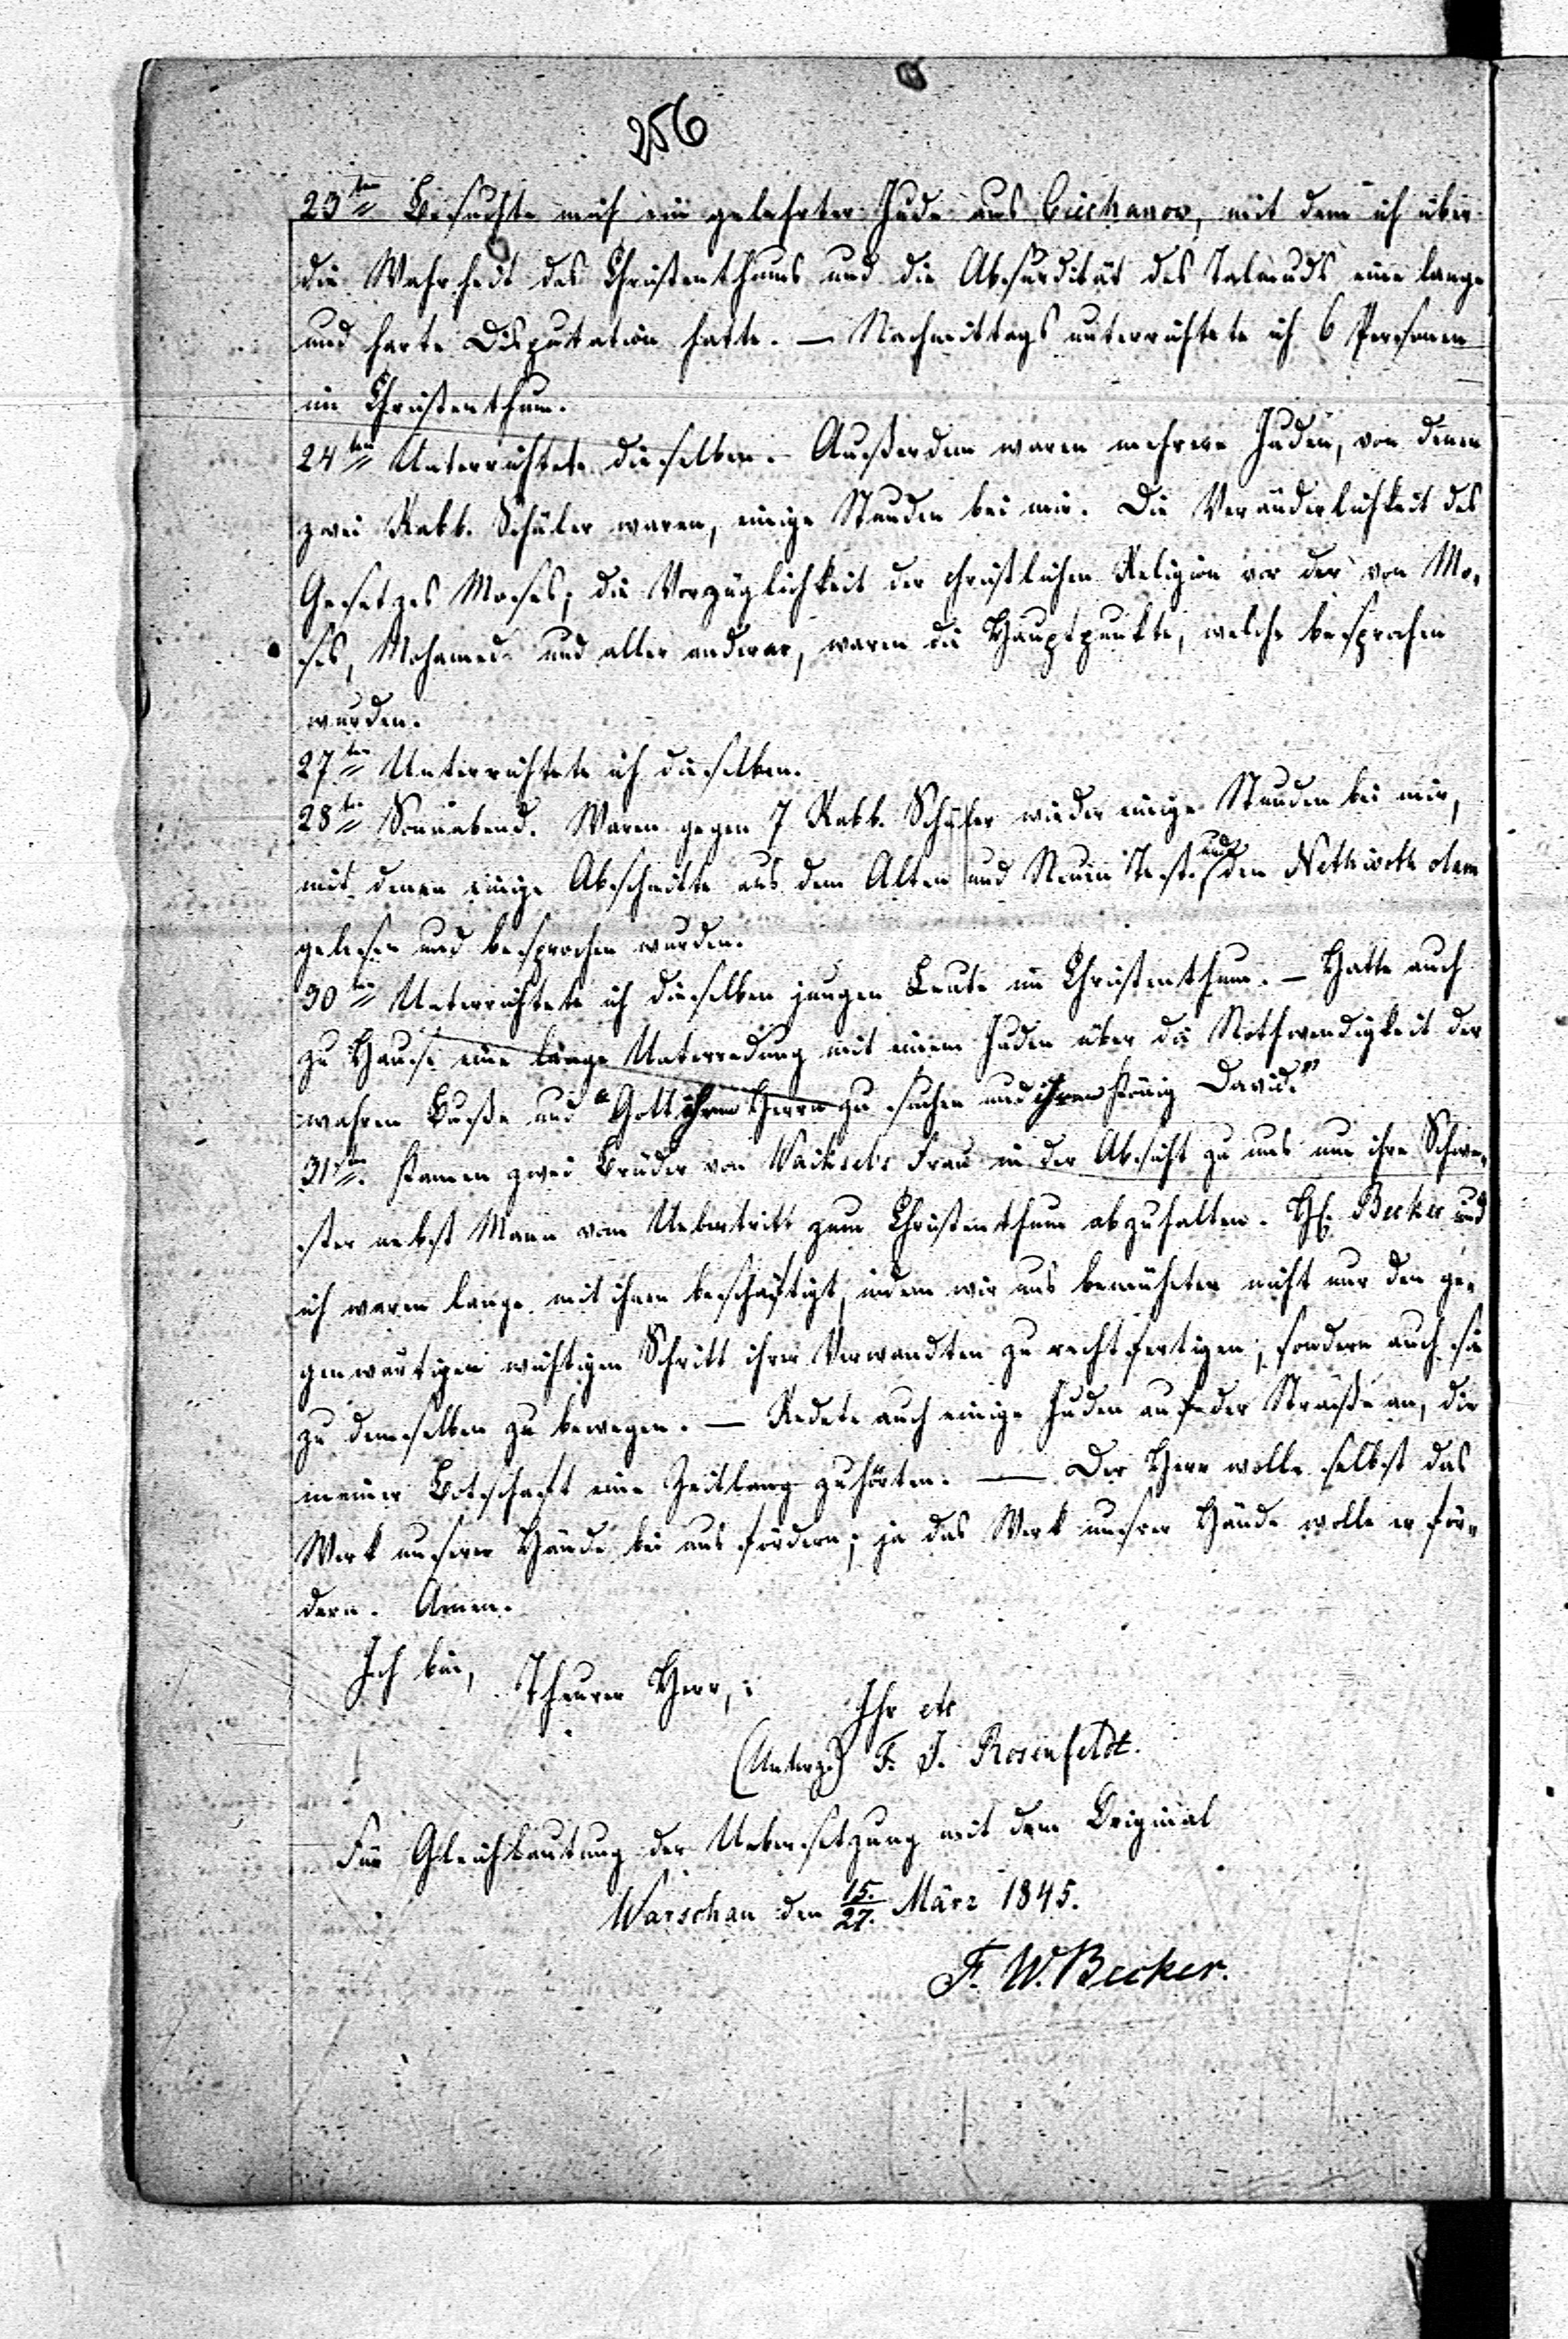 256
23ten Besuchte mich ein gelehrter Jude aus Ciechanow, mit dem ich über
die Wahrheit des Christenthums und die Absurdität des Talmuds eine lange
und harte Disputation hatte. — Nachmittags unterrichtete ich 6 Personen
im Christenthum.
24ten Unterrichtete dieselben. Außerdem waren mehrere Juden, von denen
zwei Rabb. Schüler waren, einige Stunden bei mir. Die Veränderlichkeit des
Gesetzes Moses, die Vorzüglichkeit der christlichen Religion vor der von Mo-
ses, Mohamed und aller anderer, waren die Hauptpunkte, welche besprochen
wurden.
27ten Unterrichtete ich dieselben.
28ten Sonnabend. Waren gegen 7 Rabb. Schüler wieder einige Stunden bei mir,
mit denen einige Abschnitte aus dem Alten und Neuen Test. und den Nethiwoth olam
gelesen und besprochen wurden.
30ten Unterrichtete ich dieselben jungen Leute im Christenthum. — Hatte auch
zu Hause eine lange Unterredung mit einem Juden über die Nothwendigkeit der
wahren Buße und "Gott ihren Herrn zu suchen und ihren König David."
31ten. Kamen zwei Brüder von Waiksels Frau in der Absicht zu uns um ihre Schwe-
ster nebst Mann vom Uebertritt zum Christenthum abzuhalten. H. Becker und
ich waren lange mit ihnen beschäftigt, indem wir uns bemühten nicht nur den ge-
genwärtigen wichtigen Schritt ihrer Verwandten zu rechtfertigen, sondern auch sie
zu demselben zu bewegen. — Redete auch einige Juden auf der Straße an, die
meiner Botschaft eine Zeitlang zuhörten. — Der Herr wolle selbst das
Werk unserer Hände bei uns fördern; ja das Werk unsrer Hände wolle er för-
dern. Amen.
Ich bin, Theurer Herr,
Ihr etc
(Unterz.) F. J. Rosenfeldt.
Für Gleichlautung der Uebersetzung mit dem Original
Warschau den 15./27. März 1845.
F. W. Becker.